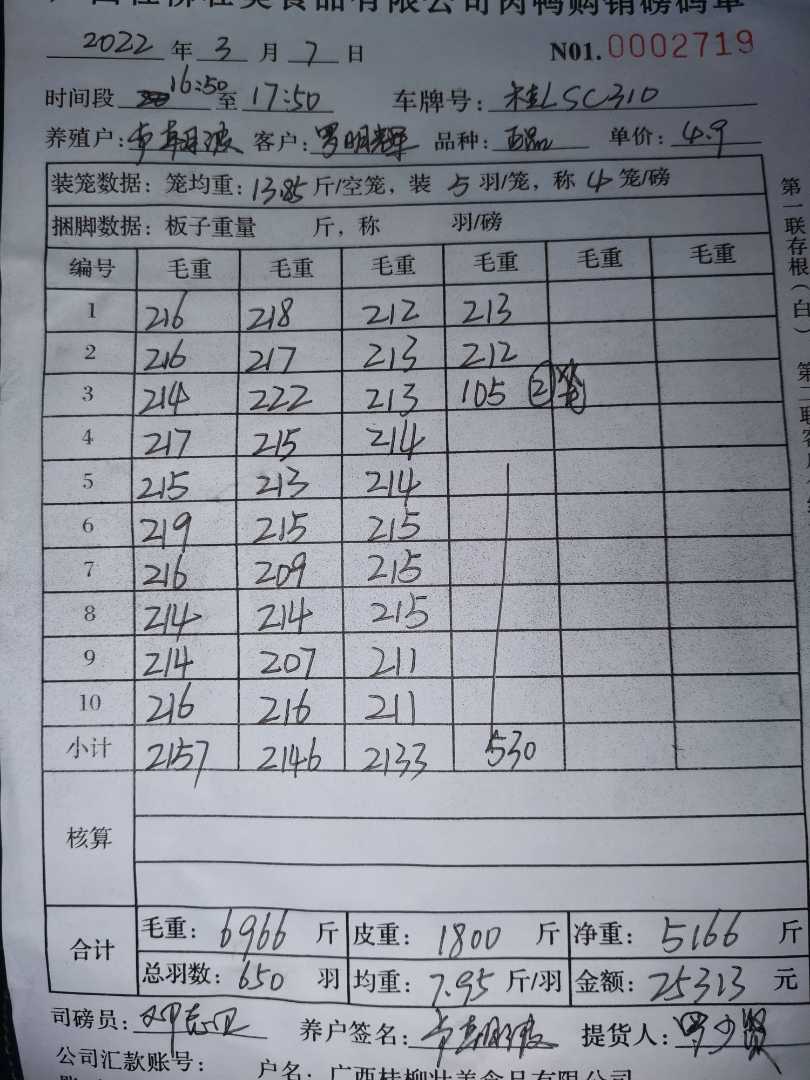 广西桂柳壮美食品有限公司肉鸭购销磅码单
2022 年 3 月 7 日 N01. 0002719
时间段 16:50 至 17:50 车牌号: 桂LSC310
养殖户: 客户: 罗明辉 品种: 单价: 4.9
装笼数据: 笼均重: 13.85 斤/空笼, 装 5 羽/笼, 称 4 笼/磅
捆脚数据: 板子重量 斤, 称 羽/磅
编号 毛重 毛重 毛重 毛重 毛重 毛重
1 216 218 212 213
2 216 217 213 212
3 214 222 213 105 ②笼
4 217 215 214
5 215 213 214
6 219 215 215
7 216 209 215
8 214 214 215
9 214 207 211
10 216 216 211
小计 2157 2146 2133 530
核算
合计
毛重: 6966 斤 皮重: 1800 斤 净重: 5166 斤
总羽数: 650 羽 均重: 7.95 斤/羽 金额: 25313 元
司磅员: 养户签名: 提货人: 罗少贤
公司汇款账号: 户名: 广西桂柳壮美食品有限公司
第一联存根(白) 第二联客